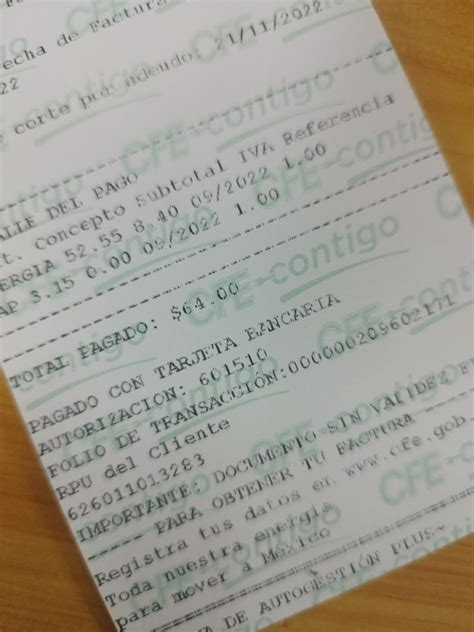 echa de Factura
22
corte por adeudo: 21/11/2022
ALLE DEL PAGO
t. Concepto Subtotal IVA Referencia
ERGIA 52.55 8.40 09/2022 1.00
AP 3.15 0.00 09/2022 1.00
TOTAL PAGADO: $64.00
PAGADO CON TARJETA BANCARIA
AUTORIZACION: 601510
FOLIO DE TRANSACCIÓN:000000209602171
RPU del Cliente
626011013283
IMPORTANTE: DOCUMENTO SIN VALIDEZ F
PARA OBTENER TU FACTURA
Registra tus datos en www.cfe.gob
Toda nuestra energía
para mover a México
A DE AUTOGESTIÓN PLUS~
CFE-contigo